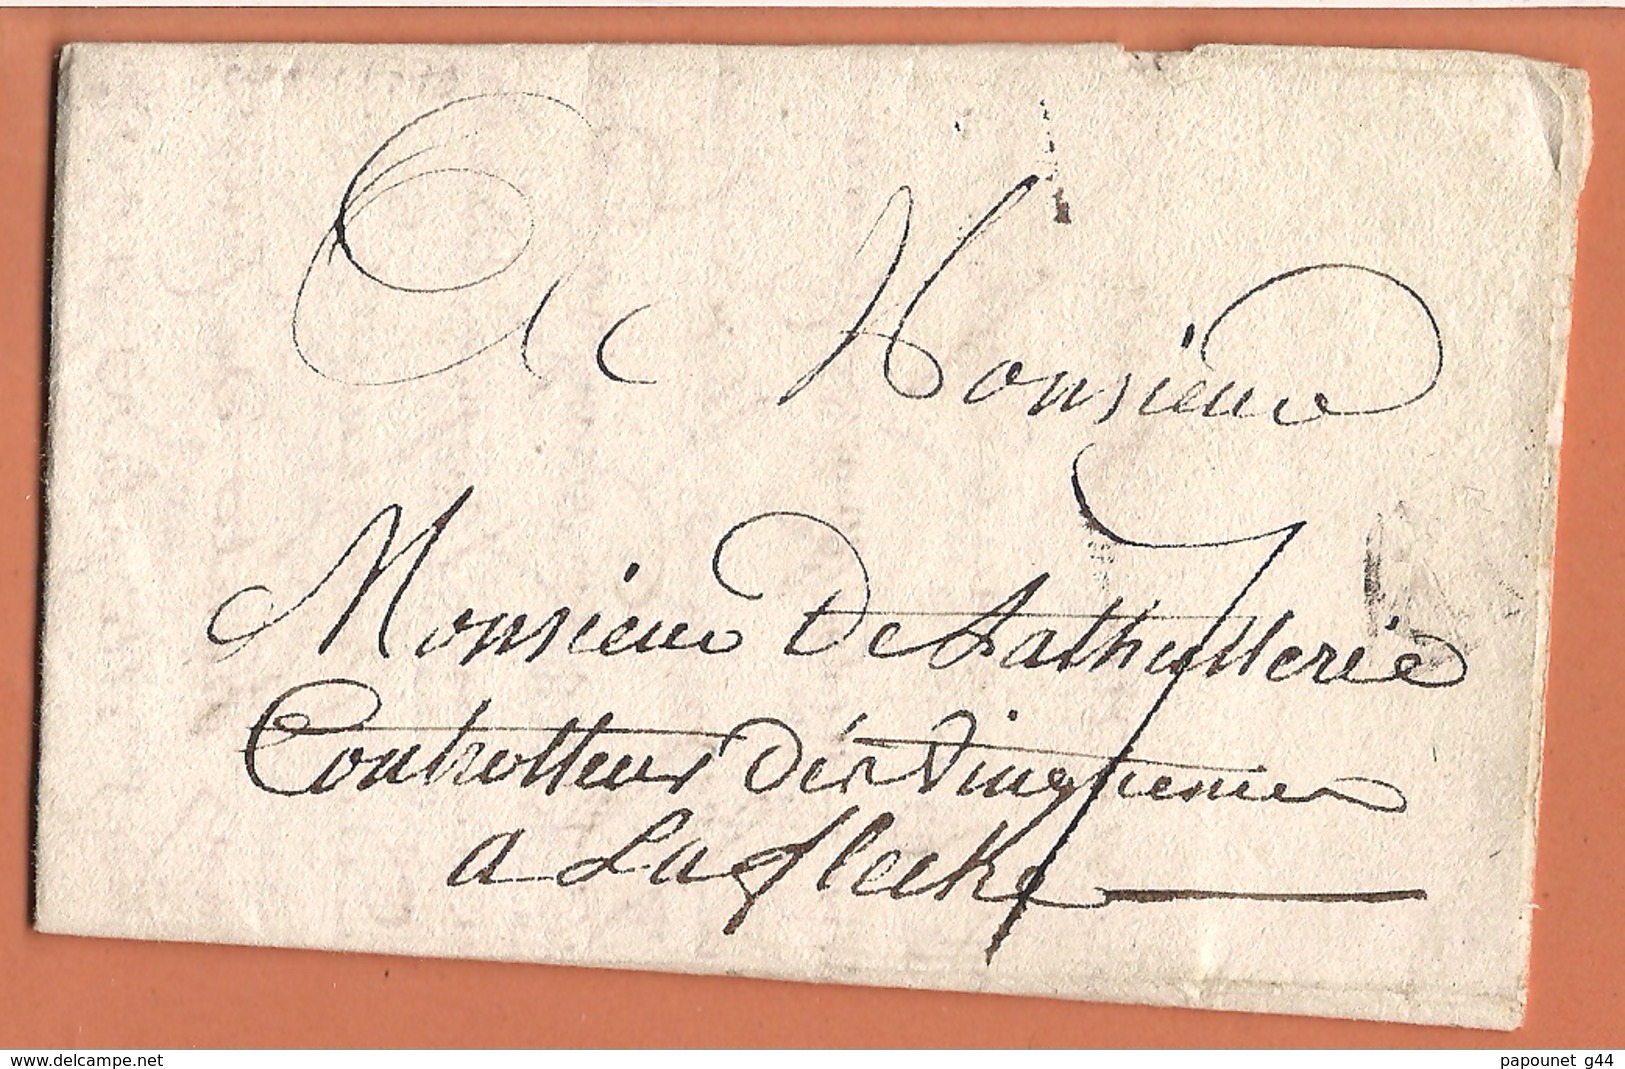 A Monsieur
Monsieur De Lathuillerie
Controlleur des Vingtiemes
a La fleche
www.delcampe.net
papounet_g44